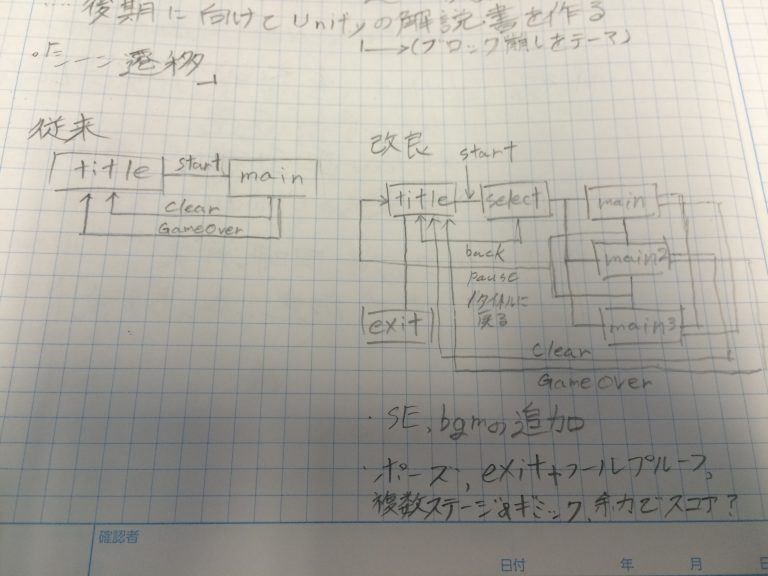 後期に向けてUnityの解説書を作る
→(ブロック崩しをテーマ)
・「シーン遷移」
従来
title
start
main
clear
GameOver
改良
start
title
select
main
back
main2
pause
タイトルに
戻る
exit
main3
clear
GameOver
・SE、bgmの追加
・ポーズ、exit+フールプルーフ、
複数ステージ&ギミック、余力でスコア?
確認者
日付 年 月 日